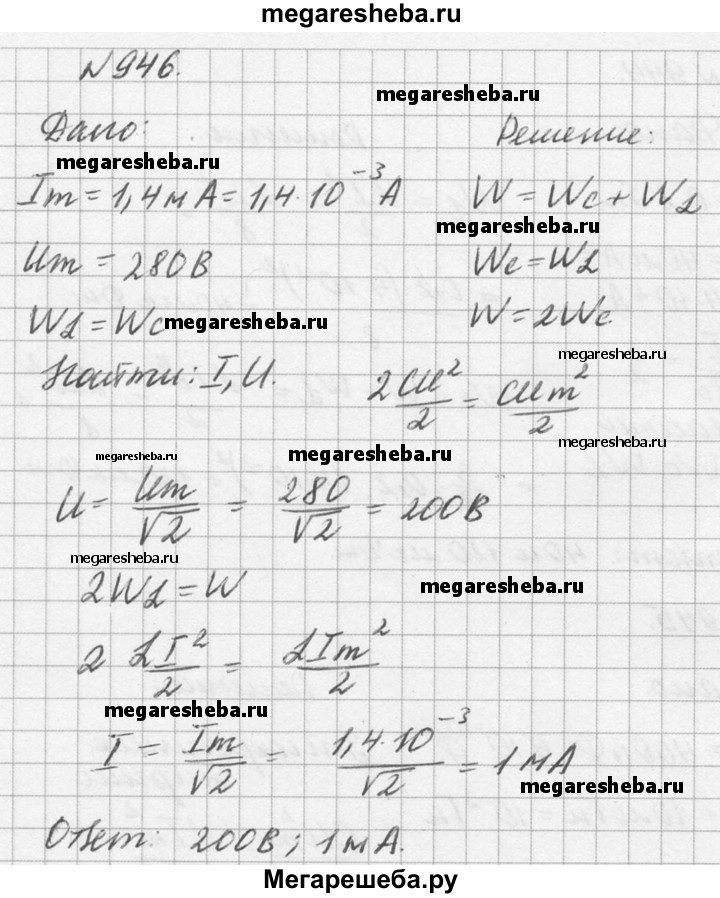 megaresheba.ru
№946.
megaresheba.ru
Дано:
Решение:
megaresheba.ru
Im = 1,4мА = 1,4·10⁻³А
W = Wc + WL
megaresheba.ru
Um = 280В
Wc = WL
WL = Wc
megaresheba.ru
W = 2Wc
megaresheba.ru
Найти: I, U.
2 CU²/2 = CUm²/2
megaresheba.ru
megaresheba.ru
megaresheba.ru
U = Um/√2 = 280/√2 = 200В
megaresheba.ru
2WL = W
megaresheba.ru
2 LI²/2 = LIm²/2
megaresheba.ru
I = Im/√2 = 1,4·10⁻³/√2 = 1мА
megaresheba.ru
Ответ: 200В; 1мА.
megaresheba.ru
Мегарешеба.ру